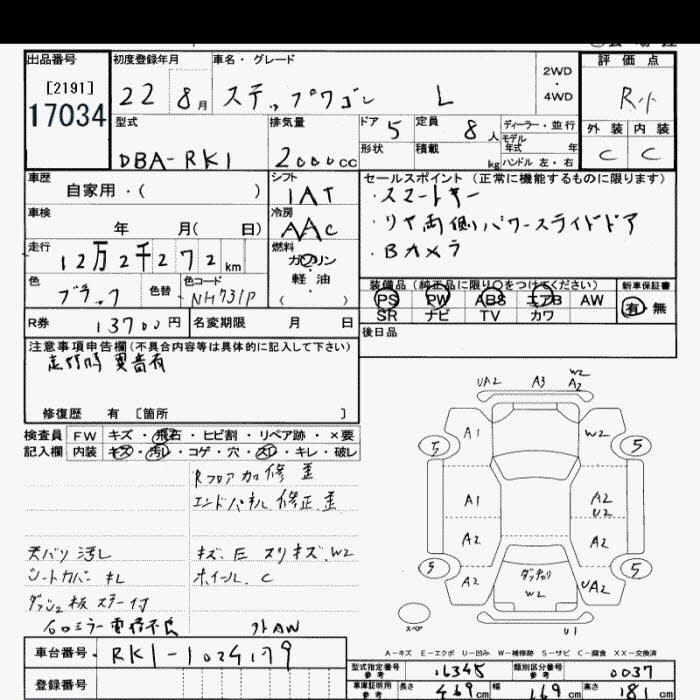 出品番号 初度登録年月 車名・グレード 評価点
[2191] 2WD
17034 22 8月 ステップワゴン L ・ 4WD R
型式 排気量 ドア 5 定員 8人 ディーラー・並行 外装 内装
形状 積載 kg モデル年式 年 C C
DBA-RK1 2000cc ハンドル 左・右
車歴 シフト セールスポイント (正常に機能するものに限ります)
自家用・( ) IAT ・スマートキー
車検 冷房 ・リヤ両側パワースライドドア
年 月( 日) AAC ・Bカメラ
走行 燃料
12万2千272km ガソリン
色 色替 色コード 軽油 装備品 (純正品に限り○をつけてください) 新車保証書
ブラック NH731P ( ) PS PW ABS エアB AW 有・無
R券 13700円 名変期限 月 日 SR ナビ TV カワ
注意事項申告欄(不具合内容等は具体的に記入して下さい) 後日品
走行時 異音有
修復歴 有 [箇所 ]
UA2 A3 W2
A2
検査員 FW キズ・飛石・ヒビ割・リペア跡・×要 A1 W2
記入欄 内装 キズ・汚レ・コゲ・穴・スレ・キレ・破レ 5 5
Rフロア加修歪
エンドパネル修正歪 A1 A2
U2
天バリ汚レ キズ、E スリキズ、W2 A2 A2
シートカバーキレ ホイール、C 5 5
ダッシュ板ステー付 A2 W2 UA2
外AW スペア U1
A-キズ E-エクボ U-凹み W-補修跡 S-サビ C-腐食 XX-交換済
車台番号 RK1-1024179
型式指定番号 16345 類別区分番号 0037
参考 参考
登録番号 車庫証明用 長さ 469cm 幅 169cm 高さ 181cm
参考